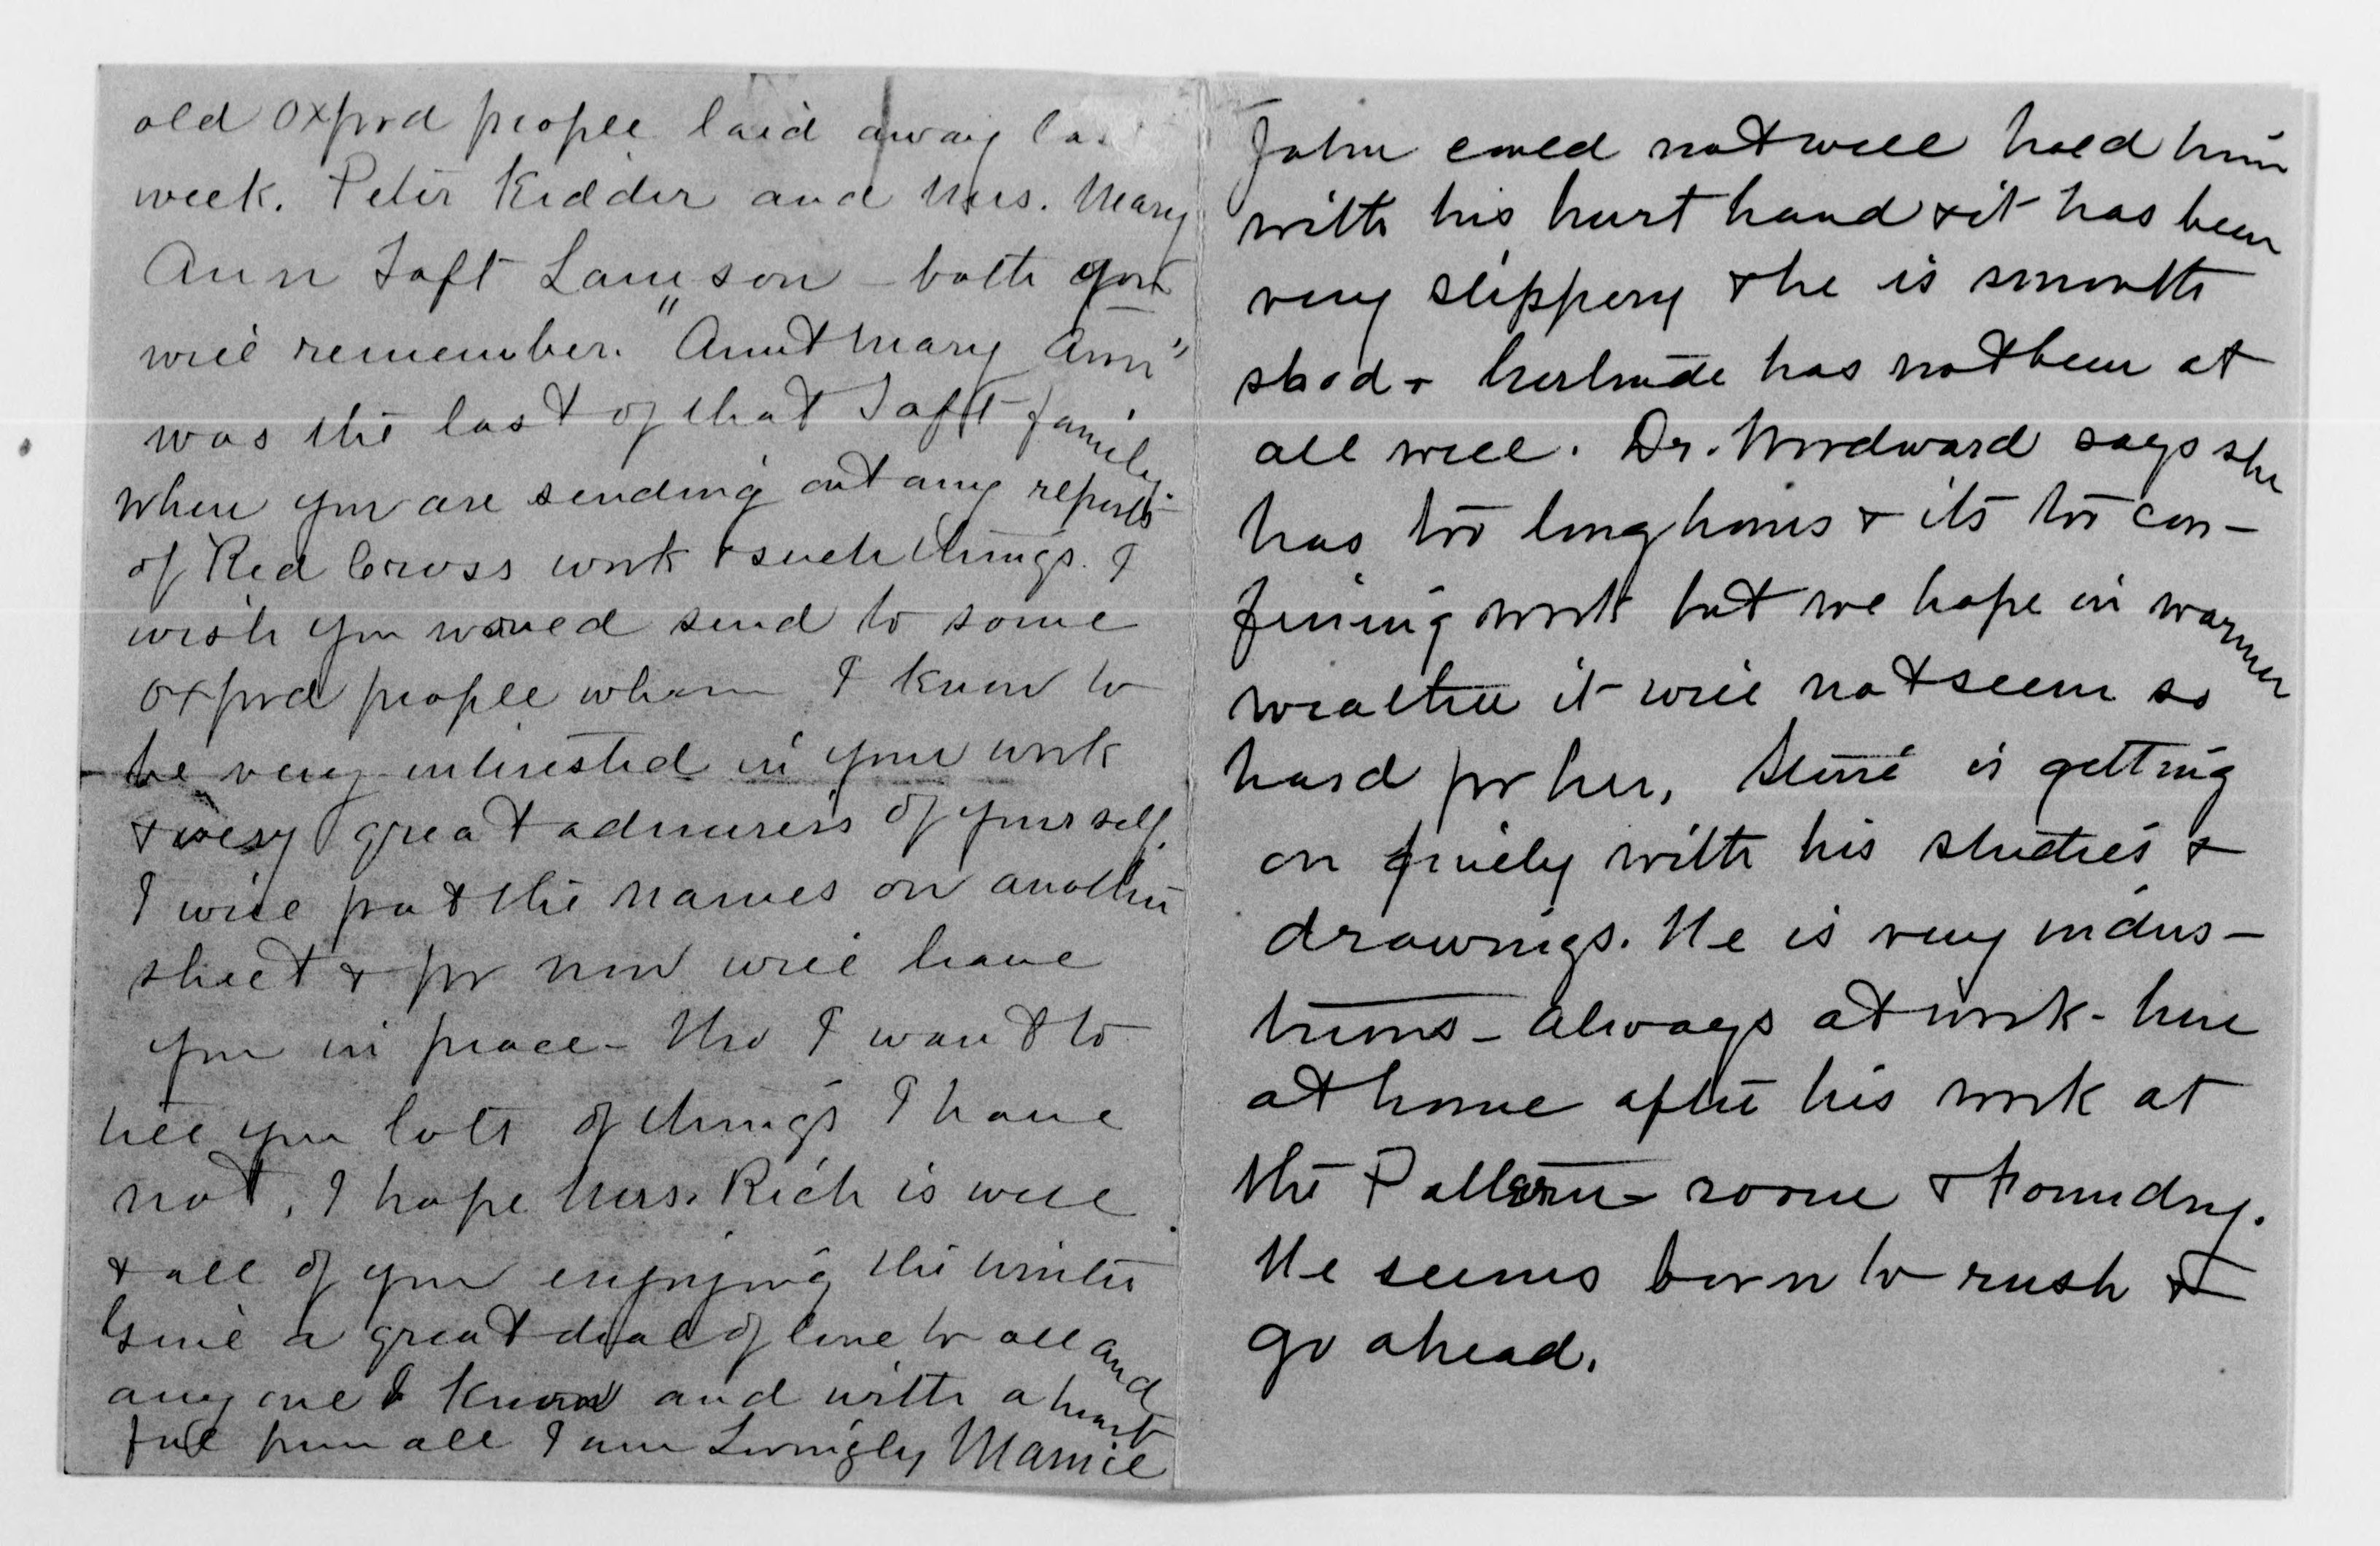 old Oxford people laid away
week. Peter Kidder and Mrs. Mary
Ann Taft Lamson - both you
will remember. "Aunt Mary Ann"
was the last of that Taft family.
When you are sending out any reports
of Red Cross work & such things. I
wish you would send to some
Oxford people whom I know to
be very interested in your work
& very great admirers of yourself.
I will put the names on another
sheet & for now will leave
you in peace - tho I want to
tell you lots of things I have
not, I hope Mrs. Rich is well
& all of you enjoying the winter
Give a great deal of love to all and
any one I know and with a heart
full from all I am Lovingly Mamie
John could not well hold him
with his hurt hand & it has been
very slippery & he is smooth
shod - Gertrude has not been at
all well. Dr. Woodward says she
has too long hours & its too con-
fining work but we hope in warmer
weather it will not seem so
hard for her, is getting
on finely with his studies &
drawings. He is very indus-
trious - always at work - here
at home after his work at
the Pattern room & Foundry.
He seems born to rush &
go ahead.